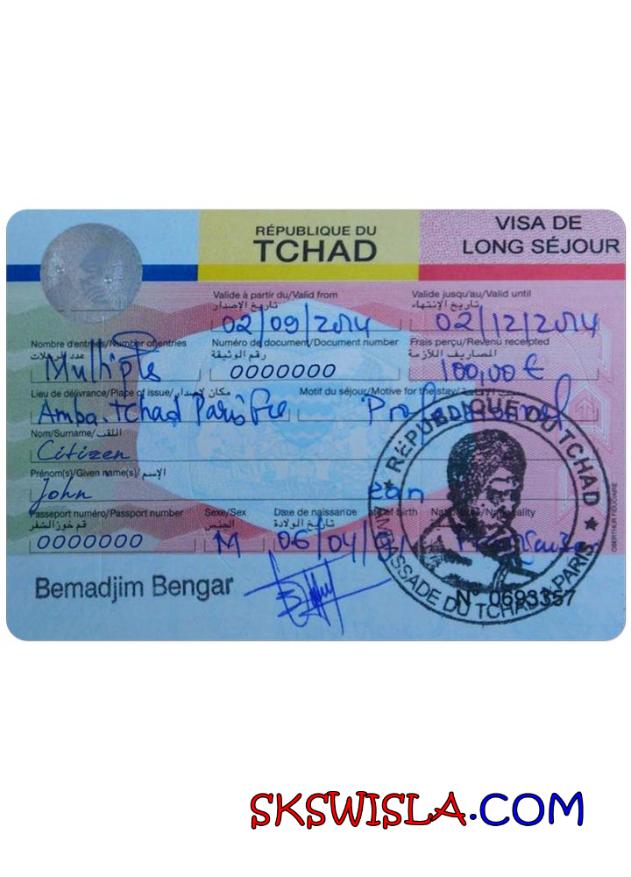 RÉPUBLIQUE DU
TCHAD
VISA DE
LONG SÉJOUR
Valide à partir du/Valid from
تاريخ الإصدار
02/09/2014
Valide jusqu'au/Valid until
تاريخ الإنتهاء
02/12/2014
Nombre d'entrées/Number of entries
عدد الرحلات
Multiple
Numéro de document/Document number
رقم الوثيقة
0000000
Frais perçu/Revenu receipted
المصاريف اللازمة
100,00 €
Lieu de délivrance/Place of issue/مكان لإصدار
Amba. tchad Paris
Motif du séjour/Motive for the stay/
Nom/Surname/اللقب
Citizen
Prénom(s)/Given name(s)/الإسم
John
Passeport numéro/Passport number
0000000
Sexe/Sex
الجنس
M
Date de naissance
تاريخ الولادة
06/04/
of birth
Bemadjim Bengar
RÉPUBLIQUE DU TCHAD
AMBASSADE DU TCHAD A PARIS
N° 0693357
OBERTHUR FIDUCIAIRE
SKSWISLA.COM